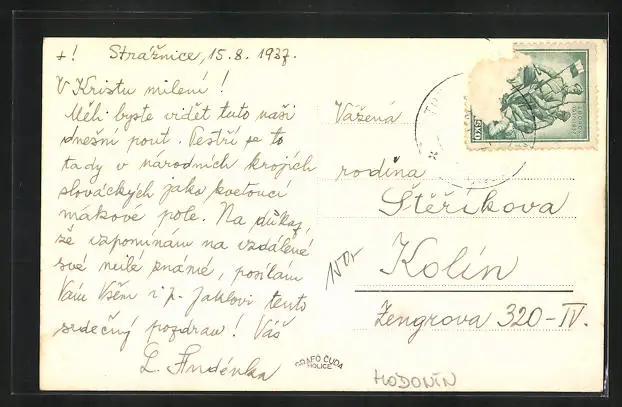 +! Strážnice, 15.8. 1937.
V Kristu milení!
Měli byste vidět tuto naši
dnešní pout. Pestří se to
tady v národních krojích
slováckých jako kvetoucí
makové pole. Na důkaz,
že vzpomínám na vzdálené
své milé známé, posílám
Vám Všem i p. Jaklovi tento
srdečný pozdrav! Váš
L.
Vážená
rodina
Štěříkova
Kolín
Zengrova 320-IV.
150,-
GRAFO ČUDA
HOLICE
HODONÍN